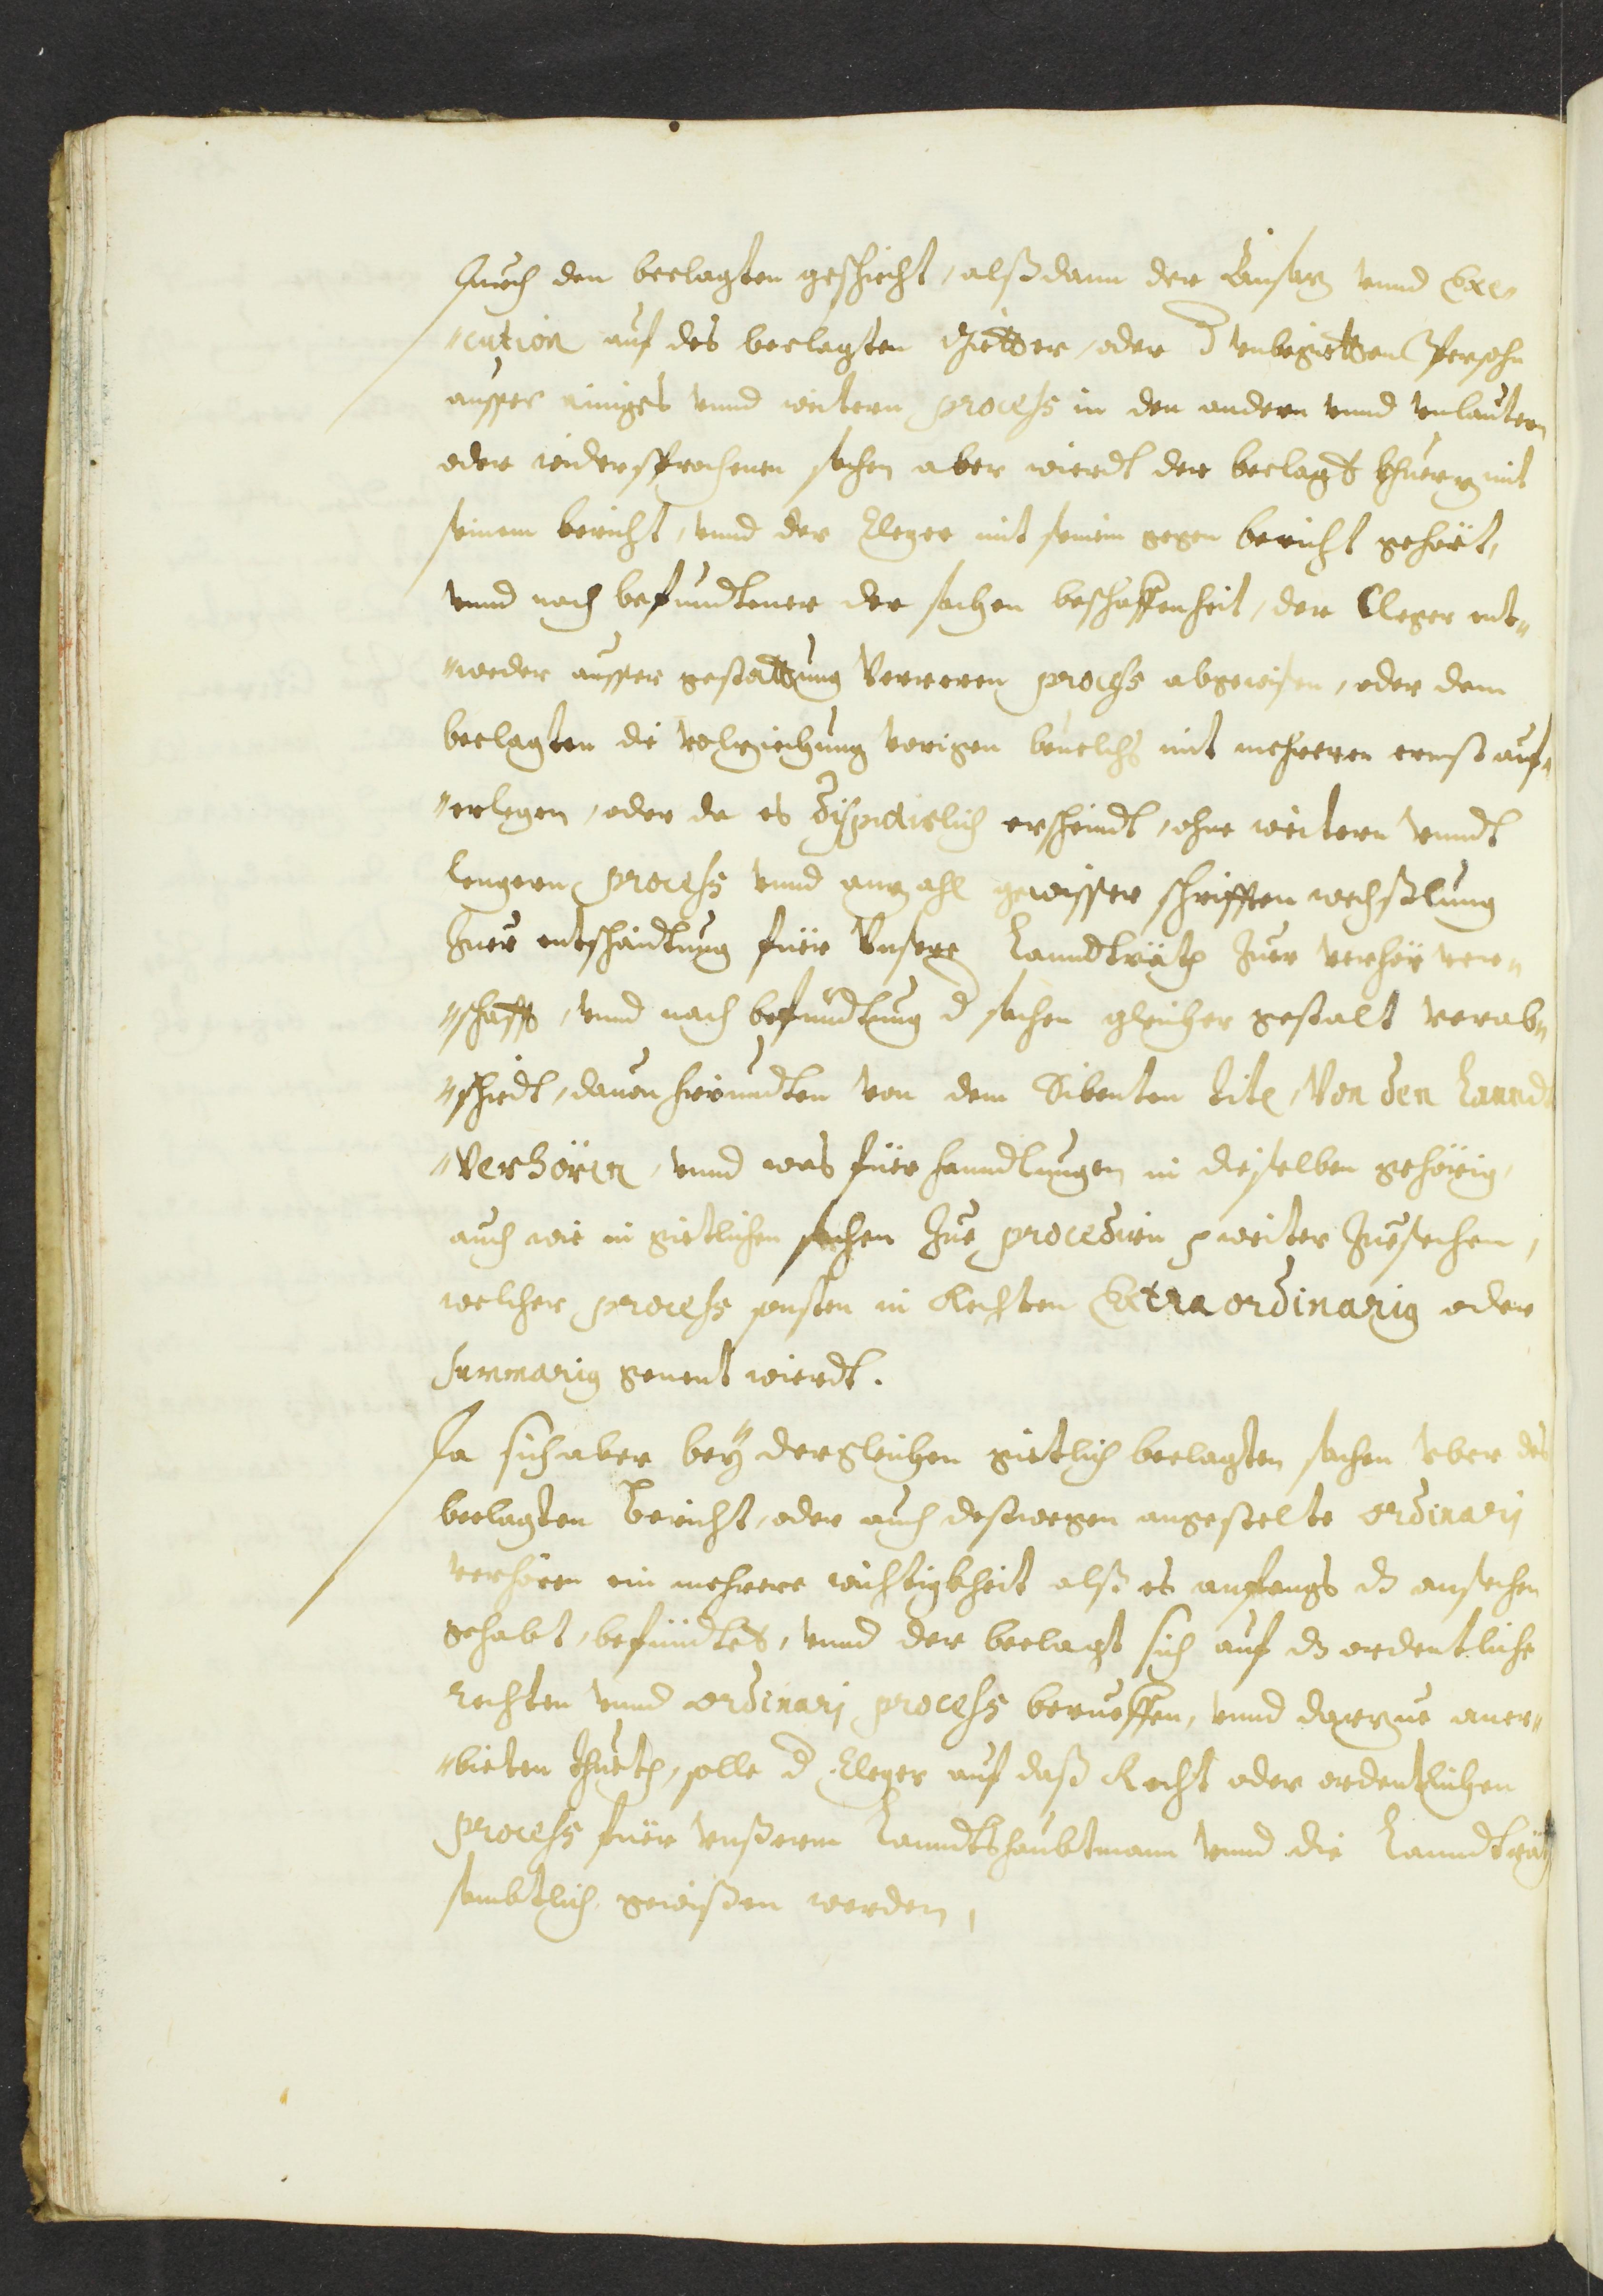 durch den beclagten geschicht, alßdann der Einsaz vnnd Exe=
=cution auf des beclagten Giettter, oder d vnbegietten Persohn
ausser einiges vnnd weitern process in den andern vnnd vnlautern
oder widersprochenen sachen aber wierdt der beclagt khürz mit
seinem bericht, vnnd der Cleger mit seinem gegen bericht gehört,
vnnd nach befundtener der sachen beschaffenheit, der Cleger ent=
=weder ausser gestattung verreren process abgewisen, oder dem
beclagten die volziechung vorigen beuelchs mit mehreren ernst auf=
=erlegen, oder da es dispudierlich erscheindt, ohne weitern vnndt
lengern process vnnd anzahl gewisser schrifften wechßlung
Zuer entschaidtung für Vnsere Lanndträth Zuer verhör ver=
=schafft, vnnd nach befündtung d sachen gleicher gestalt verab=
=schidt, dauon hierundten von dem Sibenten titl, Von den Lanndt
=Verhören, vnnd was für hanndlungen in dieselben gehörig,
auch wie in gietlichen sachen Zue procedirn weiter Zuesechen,
welcher process sonsten in Rechten Extraordinarig oder
summarig genent wierdt.
Da sich aber bey dergleichen gietlich beclagten sachen vber des
beclagten bericht, oder auch deswegen angestelte ordinarij
verhören ein mehrere wichtigkheit alß es anfangs dz ansechen
gehabt, befündtet, vnnd der beclagt sich auf dz ordentliche
rechten vnnd ordinarj process berueffen, vnnd darzue aner=
=bieten thueth, solle d Cleger auf daß Recht oder ordentlichen
process für vnßerm Lanndtshaubtmann vnnd die Lanndträth
sambtlich gewißen werden,